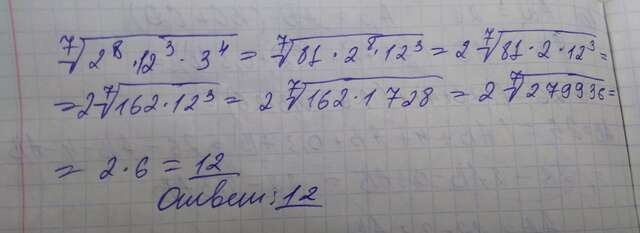 ⁷√(2⁸ · 12³ · 3⁴) = ⁷√(81 · 2⁸ · 12³) = 2 ⁷√(81 · 2 · 12³) =
= 2 ⁷√(162 · 12³) = 2 ⁷√(162 · 1 728) = 2 ⁷√(279936) =
= 2 · 6 = 12
Ответ: 12